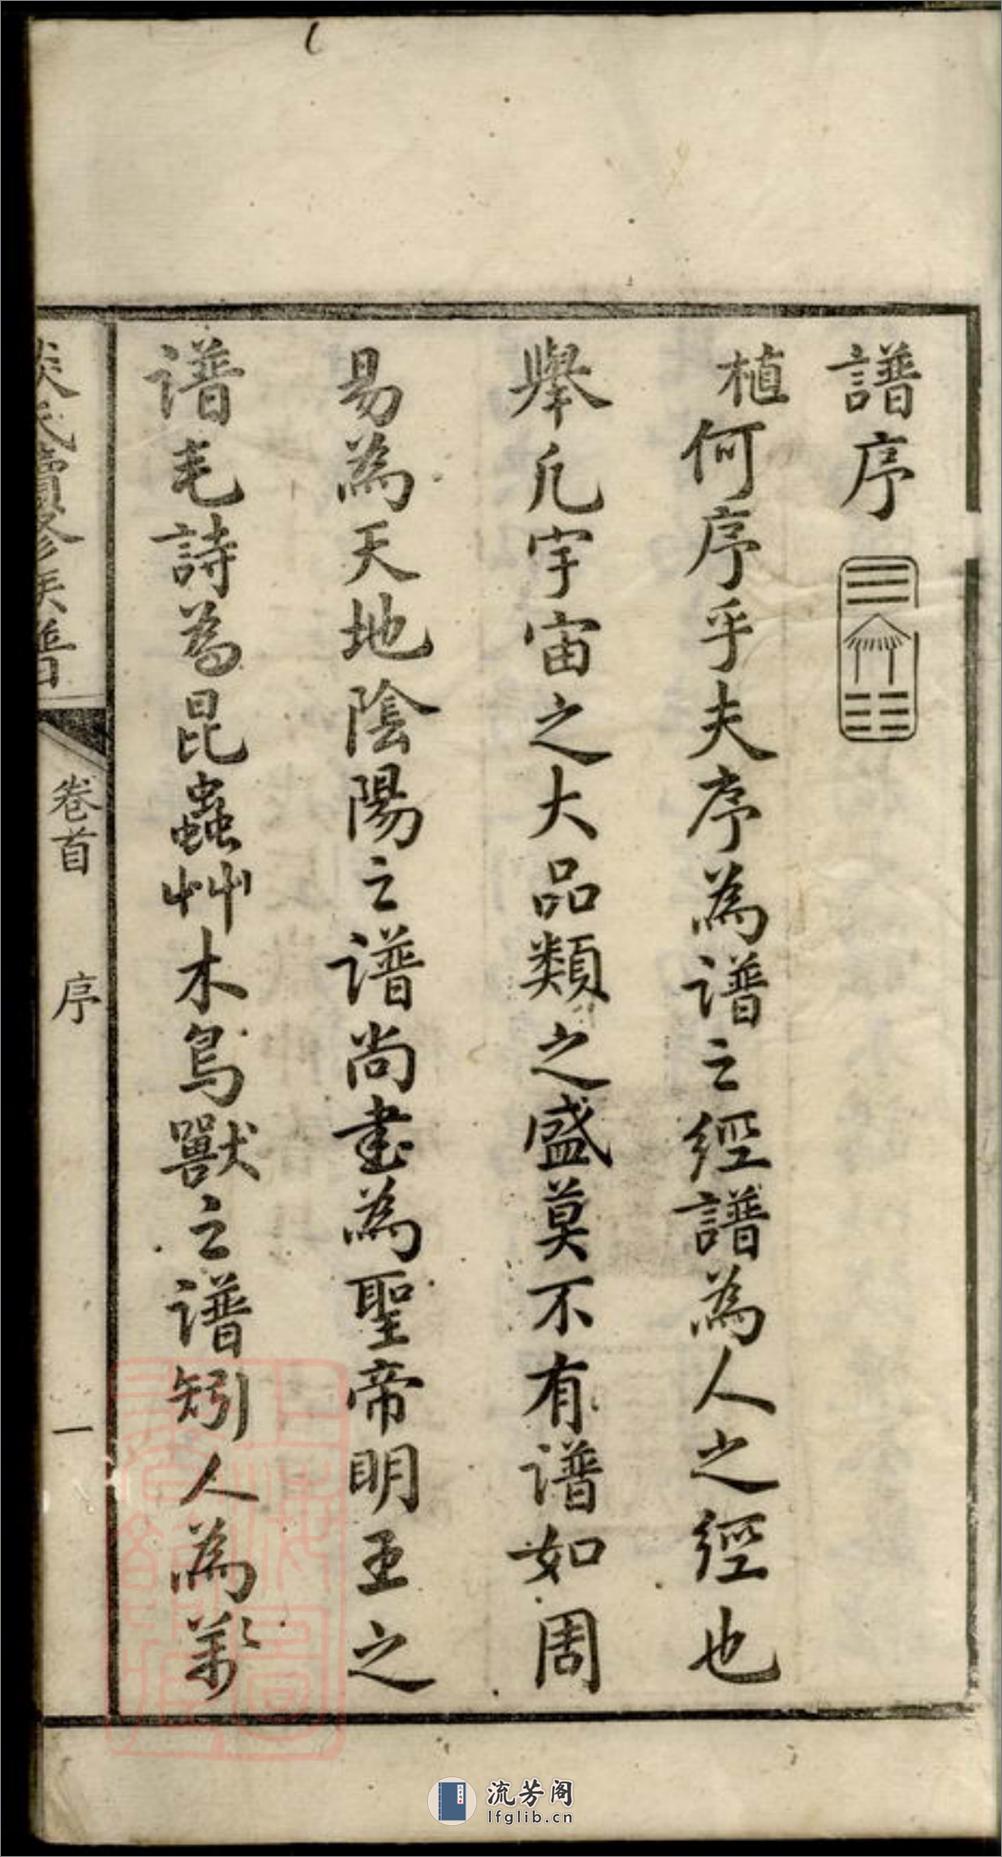 譜序
植何序乎夫序為譜之經譜為人之經也
舉凡宇宙之大品類之盛莫不有譜如周
易為天地陰陽之譜尚書為聖帝明王之
譜毛詩為昆蟲艸木鳥獸之譜矧人為萬
氏續修族譜
卷首
序
一
流芳阁
lfglib.cn